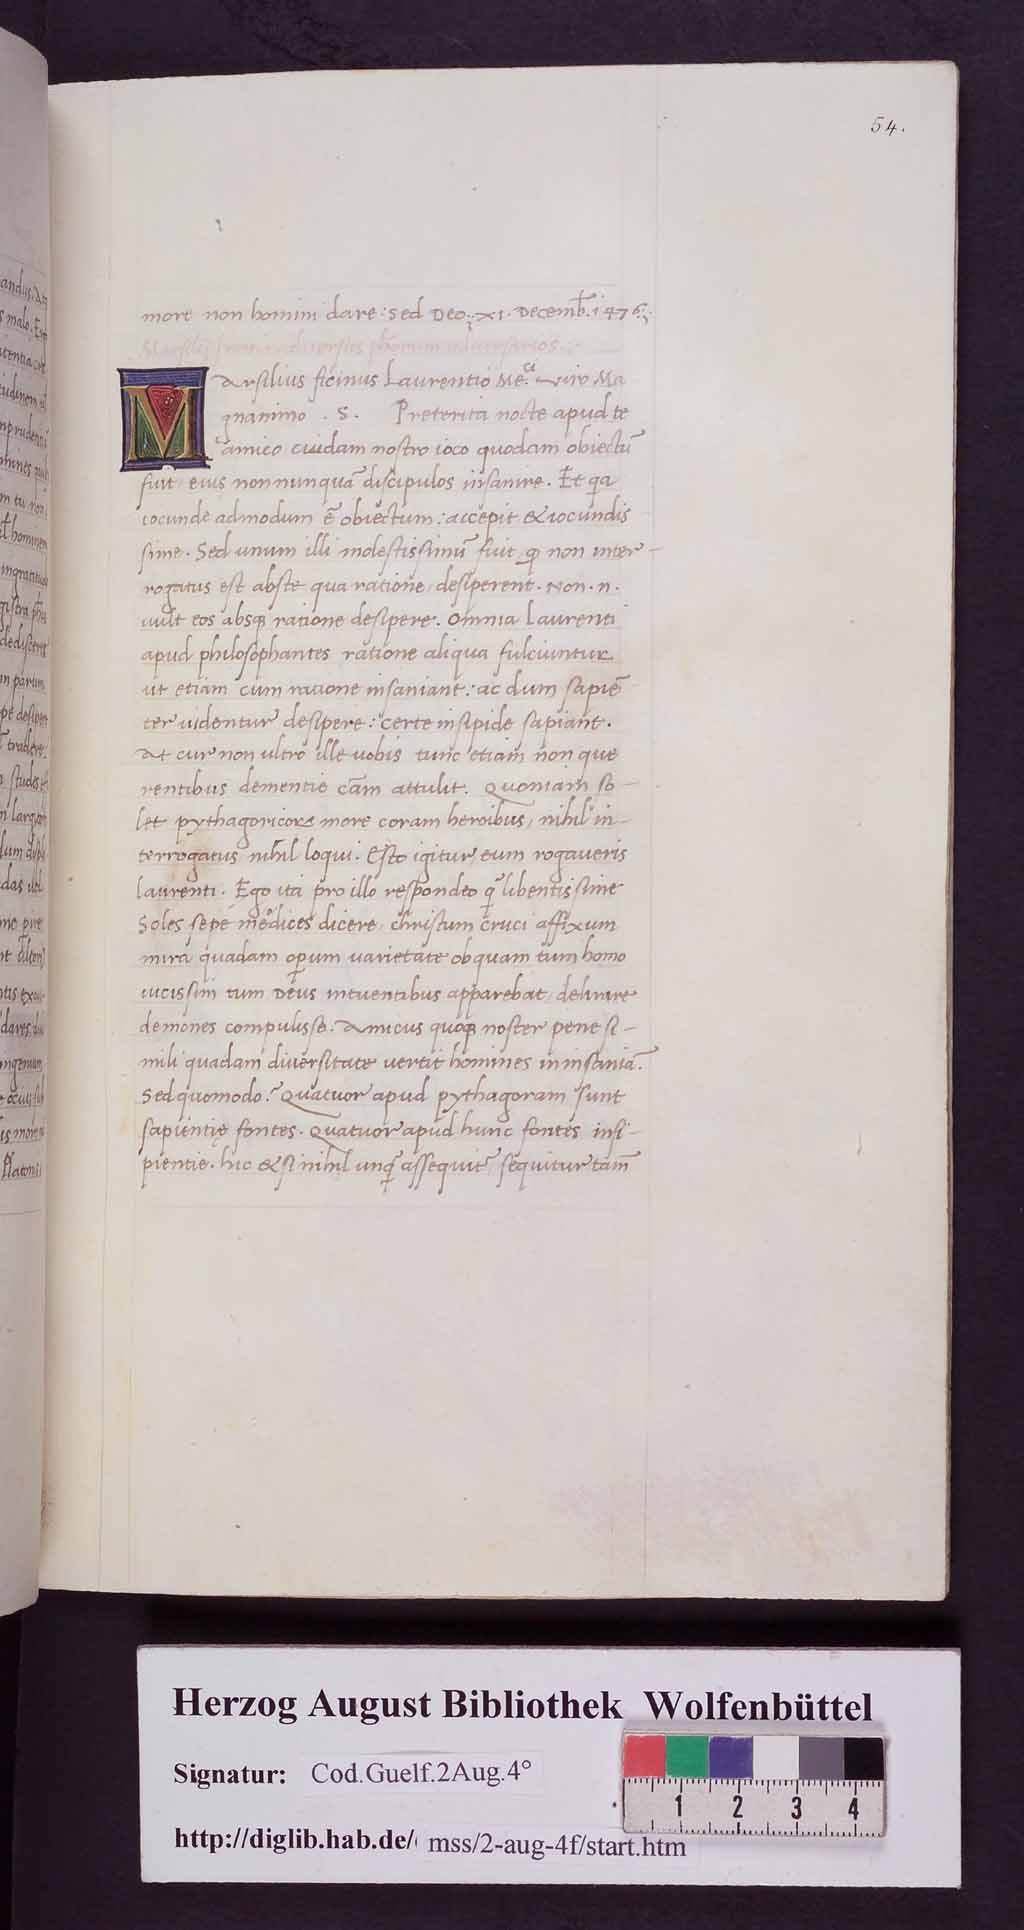 54.
more non homini dare: Sed Deo: XI. Decemb̄. 1476.
Marsilius ficinus Laurentio Me.ci viro Ma
gnanimo . S. Preterita nocte apud te
amico cuidam nostro ioco quodam obiectū
fuit eius nonnunquā discipulos insanire. Et q̄a
iocunde admodum ē obiectum: accepit & iocundis
sime. Sed unum illi molestissimū fuit q̄ non inter-
rogatus est abste qua ratione desiperent. Non .n.
uult eos absq̨ ratione desipere. Omnia Laurenti
apud philosophantes ratione aliqua fulciuntur
ut etiam cum ratione insaniant: ac dum sapiē
ter uidentur desipere: certe insipide sapiant.
At cur non ultro ille uobis tunc etiam non que
rentibus dementie cām attulit. Quoniam so-
let pythagoricore more coram heroibus, nihil in-
terrogatus nihil loqui. Esto igitur eum rogaveris
laurenti. Ego ita pro illo respondeo q̄ libentissime
Soles sepe medices dicere christum cruci affixum
mira quadam operum uarietate ob quam tum homo
uicissim tum Deus intuentibus apparebat, delirare
demones compulisse. Amicus quoq̨ noster pene si-
mili quadam diuersitate vertit homines in insaniā.
Sed quomodo? Quatuor apud pythagoram sunt
sapientię fontes. Quatuor apud hunc fontes insi-
pientie. hic & si nihil unq̄ assequit̄ sequitur tam̄
andus.
s malo.
Platoni
Herzog August Bibliothek Wolfenbüttel
Signatur: Cod.Guelf.2Aug.4°
http://diglib.hab.de/ mss/2-aug-4f/start.htm
1 2 3 4